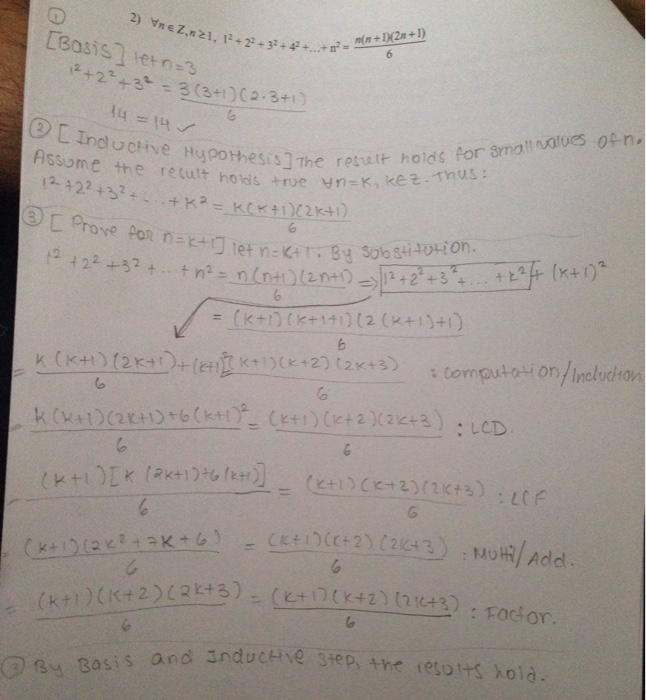 ①
2) ∀n∈Z, n≥1, 1² + 2² + 3² + 4² + ... + n² = n(n+1)(2n+1) / 6
[Basis] let n=3
1² + 2² + 3² = 3(3+1)(2·3+1) / 6
14 = 14 ✓
② [Inductive Hypothesis] The result holds for small values of n.
Assume the result holds true ∀n=K, K∈Z. Thus:
1² + 2² + 3² + ... + K² = K(K+1)(2K+1) / 6
③ [Prove for n=k+1] let n=k+1. By substitution.
1² + 2² + 3² + .. + n² = n(n+1)(2n+1) / 6 ⇒ 1² + 2² + 3² + ... + k² + (k+1)²
= (k+1)(k+1+1)(2(k+1)+1) / 6
= K(K+1)(2K+1) / 6 + (k+1)² = (K+1)(K+2)(2K+3) / 6 : computation/Induction
= K(K+1)(2K+1)+6(K+1)² / 6 = (K+1)(K+2)(2K+3) / 6 : LCD.
= (K+1)[K(2K+1)+6(K+1)] / 6 = (K+1)(K+2)(2K+3) / 6 : LCF
= (K+1)(2K²+7K+6) / 6 = (K+1)(K+2)(2K+3) / 6 : Multi/Add.
= (K+1)(K+2)(2K+3) / 6 = (K+1)(K+2)(2K+3) / 6 : Factor.
③ By Basis and Inductive step, the results hold.